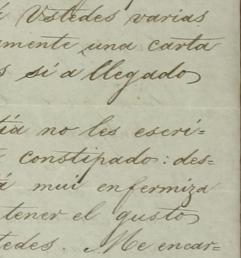 Ustedes varias
amente una carta
s si a llegado
tia no les escri=
constipado: des=
á mui enfermiza
tener el gusto
tedes. Me encar=